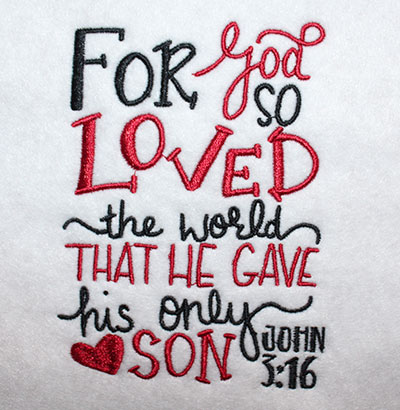 FOR God
so
LOVED
the world
THAT HE GAVE
his only
SON JOHN
3:16